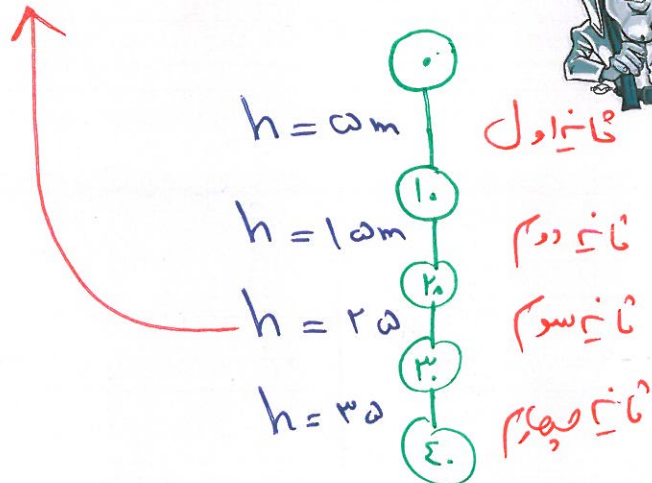 ۰
h = ۵m ثانیه اول
۱۰
h = ۱۵m ثانیه دوم
۲۰
h = ۲۵ ثانیه سوم
۳۰
h = ۳۵ ثانیه چهارم
۴۰